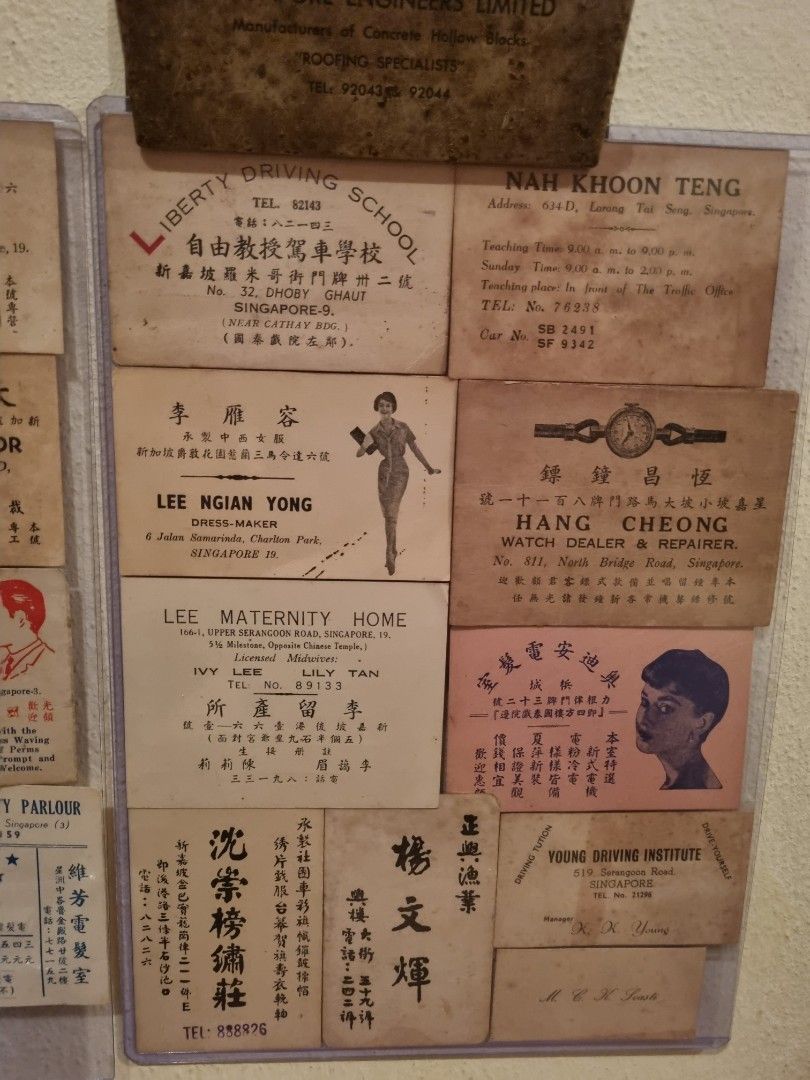 ENGINEERS LIMITED
Manufacturers of Concrete Hollow Blocks
"ROOFING SPECIALISTS"
TEL: 92043 & 92044
LIBERTY DRIVING SCHOOL
TEL. 82143
電話：八二一四三
自由教授駕車學校
新嘉坡羅米哥街門牌卅二號
No. 32, DHOBY GHAUT
SINGAPORE-9.
(NEAR CATHAY BDG.)
(國泰戲院左鄰).
NAH KHOON TENG
Address: 634-D, Lorong Tai Seng, Singapore.
Teaching Time: 9.00 a. m. to 9.00 p. m.
Sunday Time: 9.00 a. m. to 2.00 p. m.
Teaching place: In front of The Traffic Office
TEL: No. 76238
Car No. SB 2491
SF 9342
李雁容
承製中西女服
新加坡爵敦花園
LEE NGIAN YONG
DRESS-MAKER
6 Jalan Samarinda, Charlton Park,
SINGAPORE 19.
恆昌鐘鏢
星嘉坡小坡大馬路門牌八百一十一號
HANG CHEONG
WATCH DEALER & REPAIRER.
No. 811, North Bridge Road, Singapore.
LEE MATERNITY HOME
166-1, UPPER SERANGOON ROAD, SINGAPORE, 19.
5½ Milestone, Opposite Chinese Temple,)
Licensed Midwives:
IVY LEE LILY TAN
TEL: No. 89133
李留產所
新嘉坡後港壹六六一壹號
(五個半石九皇爺宮對面)
註册接生
李謁眉 陳莉莉
電話：八九一三三
奧迪安電髮室
檳城
力根律門牌三十二號
本室特選
新式電機
電粉冷電
樣樣皆備
夏萍新裝
保證美觀
價錢相宜
歡迎惠顧
承製社團車彩旗幟鑼鼓棹帽
綉片戲服台幕賀旗壽衣輓軸
沈崇榜繡莊
電話：八八八八二六
TEL: 888826
正興漁業
楊文煇
興樓大街五十九號
電話：二四二號
DRIVING TUTION
DRIVE YOURSELF
YOUNG DRIVING INSTITUTE
519, Serangoon Road,
SINGAPORE.
TEL. No. 21296
Manager
K. K. Young
六
, 19.
本號專營
OR
D,
裁
本號
專工
gapore-3.
歡迎
光顧
with the
Waving
Perms
Prompt and
Welcome.
Y PARLOUR
Singapore (3)
159
維芳電髮室
電話：七七一五九